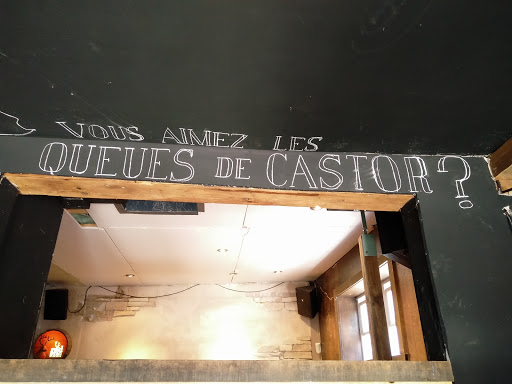 VOUS AIMEZ LES
QUEUES DE CASTOR?